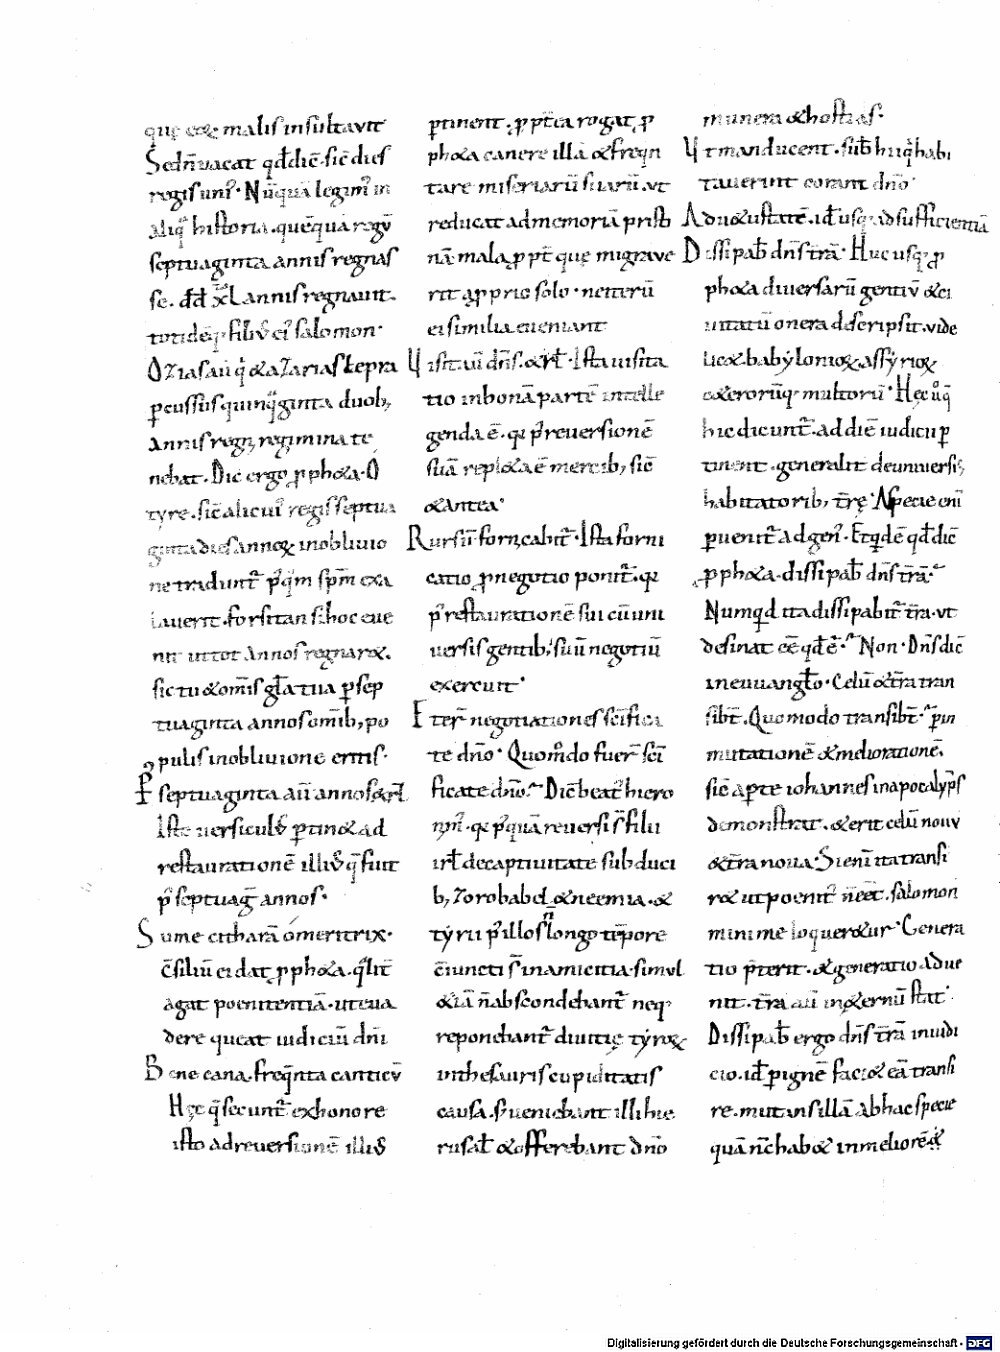 quę eoꝝ malis insultavit
Sed n̄ vacat qđ dic̄ sic̄ dies
regis uniꝰ. Nūquā legimꝰ in
aliqͣ historia. quēquā regū
septuaginta annis regnas
se. dđ xl annis regnauit.
totidēq; filiꝰ eiꝰ salomon.
Ozias aū q̇ & azarias lepra
ꝑcussus quinq̄ginta duob;
annis regn̄ regimina te
nebat. Dic ergo ꝓph&a. O
tyre. sic̄ alicuiꝰ regis septua
ginta dies annoꝝ in obliuio
ne tradunt᷑ pꝰqͣm spm̄ exa
lauerit. forsitan si hoc eue
nit ut tot annos regnar&.
sic tu & om̄is gl̄a tua ꝑ sep
tuaginta annos om̄ib; po
pulis in obliuione eritis.
Pꝰ septuaginta aū annos & rl̄.
Iste uersiculꝰ ꝑtin& ad
restaurationē illiꝰ q̄ fiuit
pꝰ septuag̅ annos.
Sume citharā o meritrix.
c̄siliū ei dat ꝓph&a. qͣlit̄
agat poenitentiā. ut eua
dere queat iudiciū dn̄i
Bene cana. freq̄nta canticū
Hęc q̄ secunt᷑ ex honore
isto ad reuersionē illiꝰ
ꝑtinent. ꝓpt̄ea rogat ꝓ
ph&a canere illā & freq̄n
tare miseriarū suarū. ut
reducat ad memoriā pristi
nā mala ꝓpt̄ quę migrave
rit a ꝓprio solo. ne iterū
ei similia eueniant
Uisit aū dn̄s. & rl̄. Ista uisita
tio in bonā partē intelle
genda ē. qͥ pꝰ reuersionē
suā repl&a ē mercib; sic̄
& antea.
Rursū fornicabit᷑. Ista forni
catio ꝓ negotio ponit᷑. qͥ
pꝰ restaurationē sui cū uni
uersis gentib; suū negotiū
exercuit.
Et er̄ negotiationes sc̄ifica
te dn̄o. Quom̊do fuer̄ sc̄i
ficate dn̄o. Dic̄ beatꝰ hiero
nym̄ꝰ. qͥ pꝰquā reuersi s̄ filii
irl̄ de captiuitate sub duci
b; zorobabel & neemia. &
tyrii pꝰ illos n̄ longo tēpore
c̄iuncti s̄ in amicitia. simul
& iā n̄ abscondebant᷑ neq;
reponebant᷑ diuitię tyroꝝ
in thesauris cupiditatis
causa. s; ueniebant illi hie
rusal̄ & offerebant dn̄o
munera & hostias.
Ut manducent. sub̄ hi q̇ habi
tauerint coram dn̄o.
Ad u& ustatē. id̄ usq; ad sufficientiā
Dissipab̄ dn̄s t̄rā. Huc usq; ꝓ
ph&a diuersarū gentiū & ci
uitatū onera d̄scripsit. vide
lic&. babyłonioꝝ assyrioꝝ
c&erorūq; multorū. Hęc ů q̄
hic dicunt᷑. ad diē iudicii ꝑ
tinent. generalit̄ de uniuersis
habitatorib; t̄rę. A specie eni
ꝑuenit᷑ ad genꝰ. Et qͥdē qđ dic̄
ꝓph&a. dissipab̄ dn̄s t̄rā.
Numqͥd ita dissipabit᷑ t̄ra. ut
desinat eē qđ ē. Non. Dn̄s dic̄
in euuangl̄io. Celū & t̄ra tran
sibt̄. Quomodo transibt̄. ꝑ in
mutationē & meliorationē.
sic̄ aꝑte iohannes in apocalyps̄
demonstrat. & erit celū nouū
& t̄ra noua. Si enī ita transi
r& ut poenitꝰ n̄ eēt. salomon
minime loquer&ur. Genera
tio pret̄erit. & generatio adue
nit. t̄ra aū in &ernū stat.
Dissipab̄ ergo dn̄s t̄rā in iudi
cio. id̄ ꝑ ignē faci& eā transi
re. mutans illā ab hac specie
quā nc̄ hab& in meliorē &
Digitalisierung gefördert durch die Deutsche Forschungsgemeinschaft - DFG